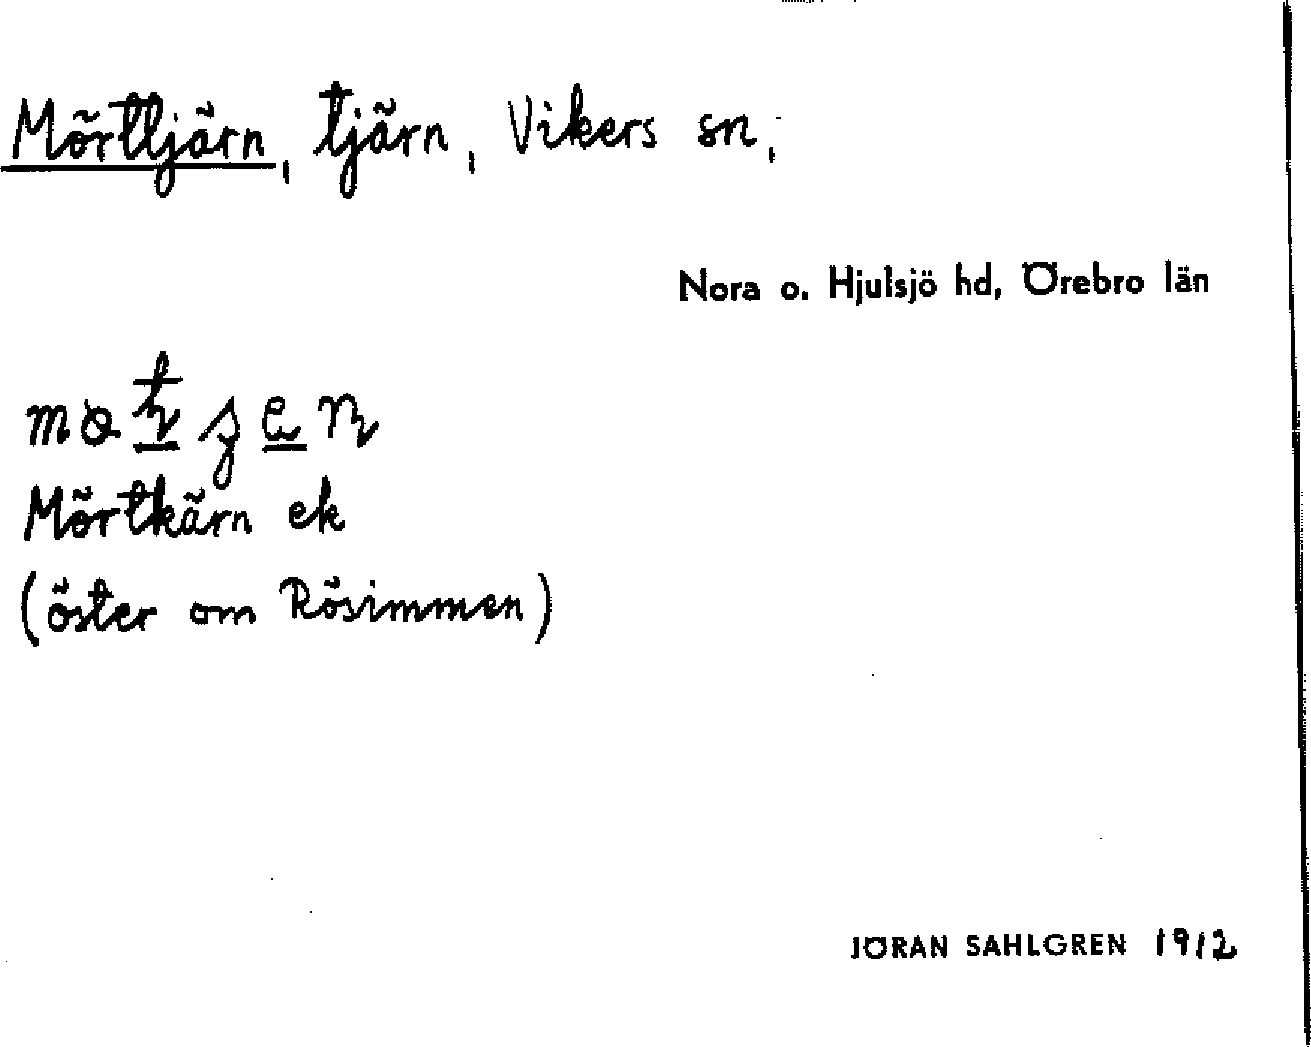 Mörttjärn, tjärn, Vikers sn,
Nora o. Hjulsjö hd, Örebro län
Mörtkärn ek
(öster om Rösimmen)
JÖRAN SAHLGREN 1912